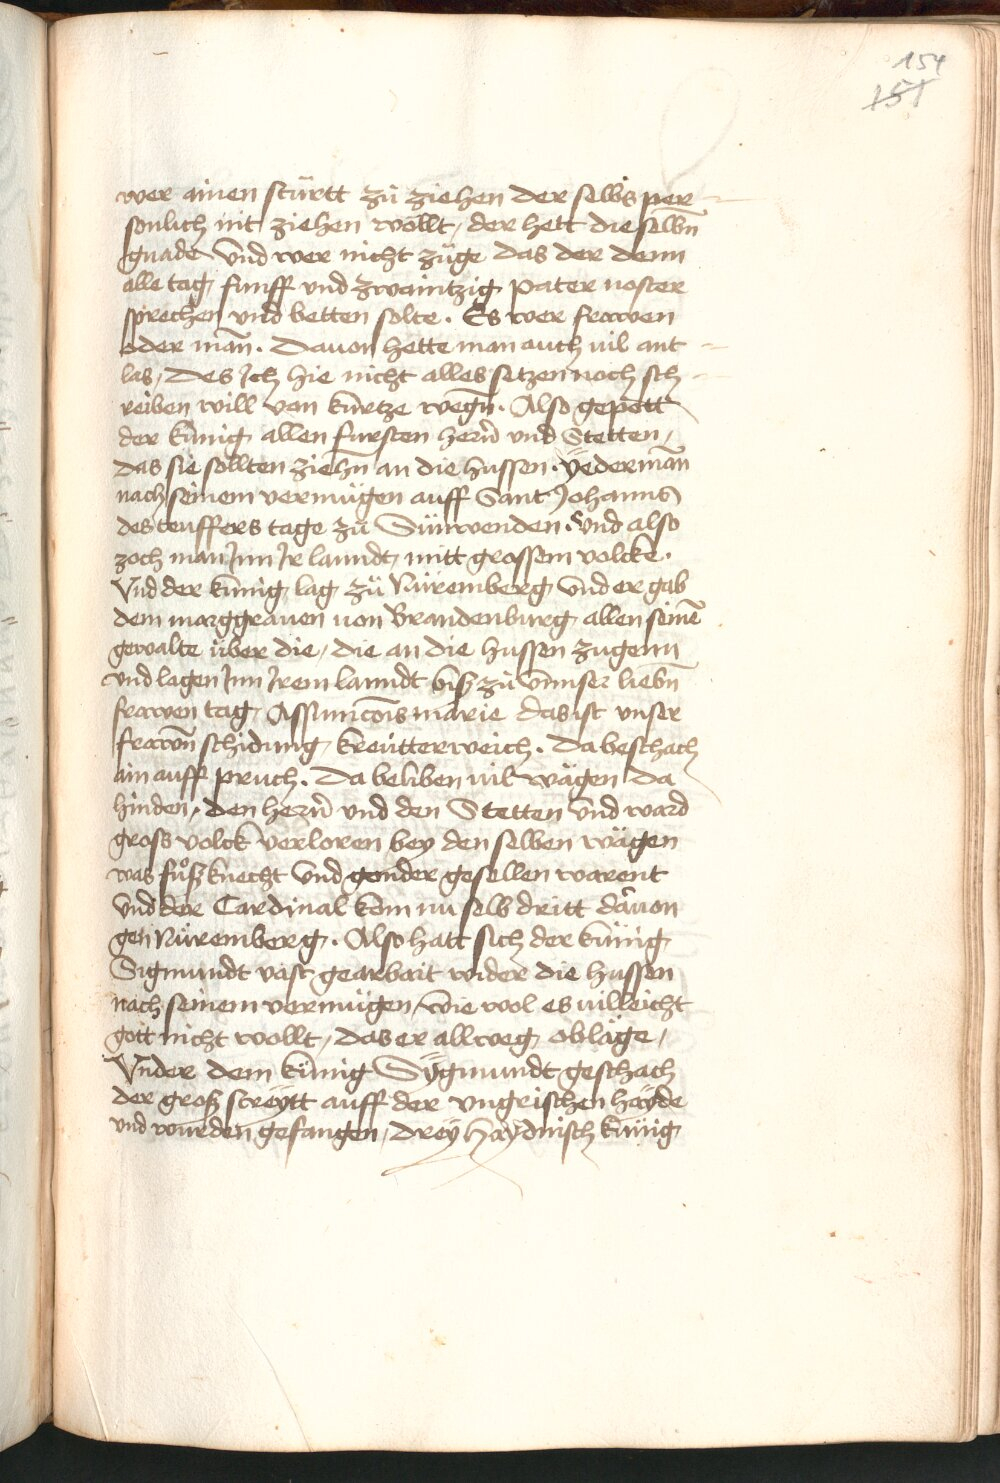 154
151
wer ainen stürtt zü ziehen der selbs per
sonlich nit ziehen wollt, der hett die selbn̄
gnade Vnd wer nicht züge das der denn
alle tag funff vnd zwaintzig pater noster
sprechen vnd betten solte. Es wer frawen
oder man̄. Dauon hette man auch vil ant
las, Des Ich hie nicht alles setzen noch sch
reiben will von kurtze wegn̄. Also gepott
der künig allen fursten hern̄ vnd Stetten,
das sie sollten ziehn̄ an die hussen. yederman̄
nach seinem vermügen auff Sant Johanns
des teuffers tage zü Sünwenden. Vnd also
zoch man Inn Ir lanndt, mitt grossem volcke.
Vnd der künig lag zü Nüremberg Vnd er gab
dem marggrauen von Brandenburg allen seinē
gewalte über die, die an die hussen zugenn
vnd lagen Inn Irem lanndt bisz zü Vnnser liebn̄
frawen tag Assumcōis marie das ist vnser
frawn̄ schidung kreütterweich. Da beschach
ain auff pruch. Da beliben vil wägen da
hinden, den hern̄ vnd den Stetten Vnd ward
gross volck verloren bey den selben wägen
was fůszknecht Vnd gender gesellen warent
Vnd der Cardinal kom nu selb dritt dauon
gen Nüremberg. Also hatt sich der künig
Sigmundt vast gearbait wider die hussen
nach seinem vermügen, wie wol es villeicht
gott nicht wollt, das er allweg obläge,
Vnder dem künig Sÿgmundt geschach
der grosz streÿtt auff der vngrischen haÿde
vnd wurden gefangen, dreÿ haÿdnisch künig